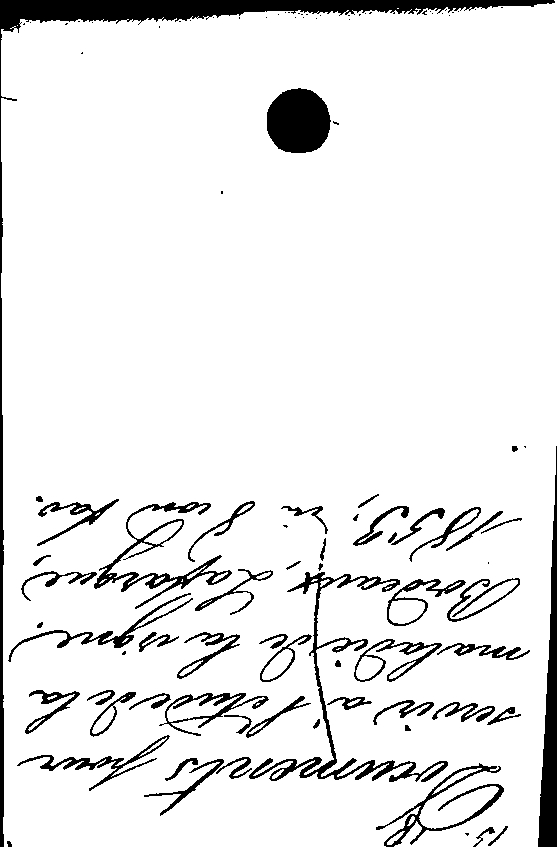 Documents pour
servir à l'étude de la
maladie de la vigne.
Bordeaux, Lafargue,
1853, in 8 non rar.